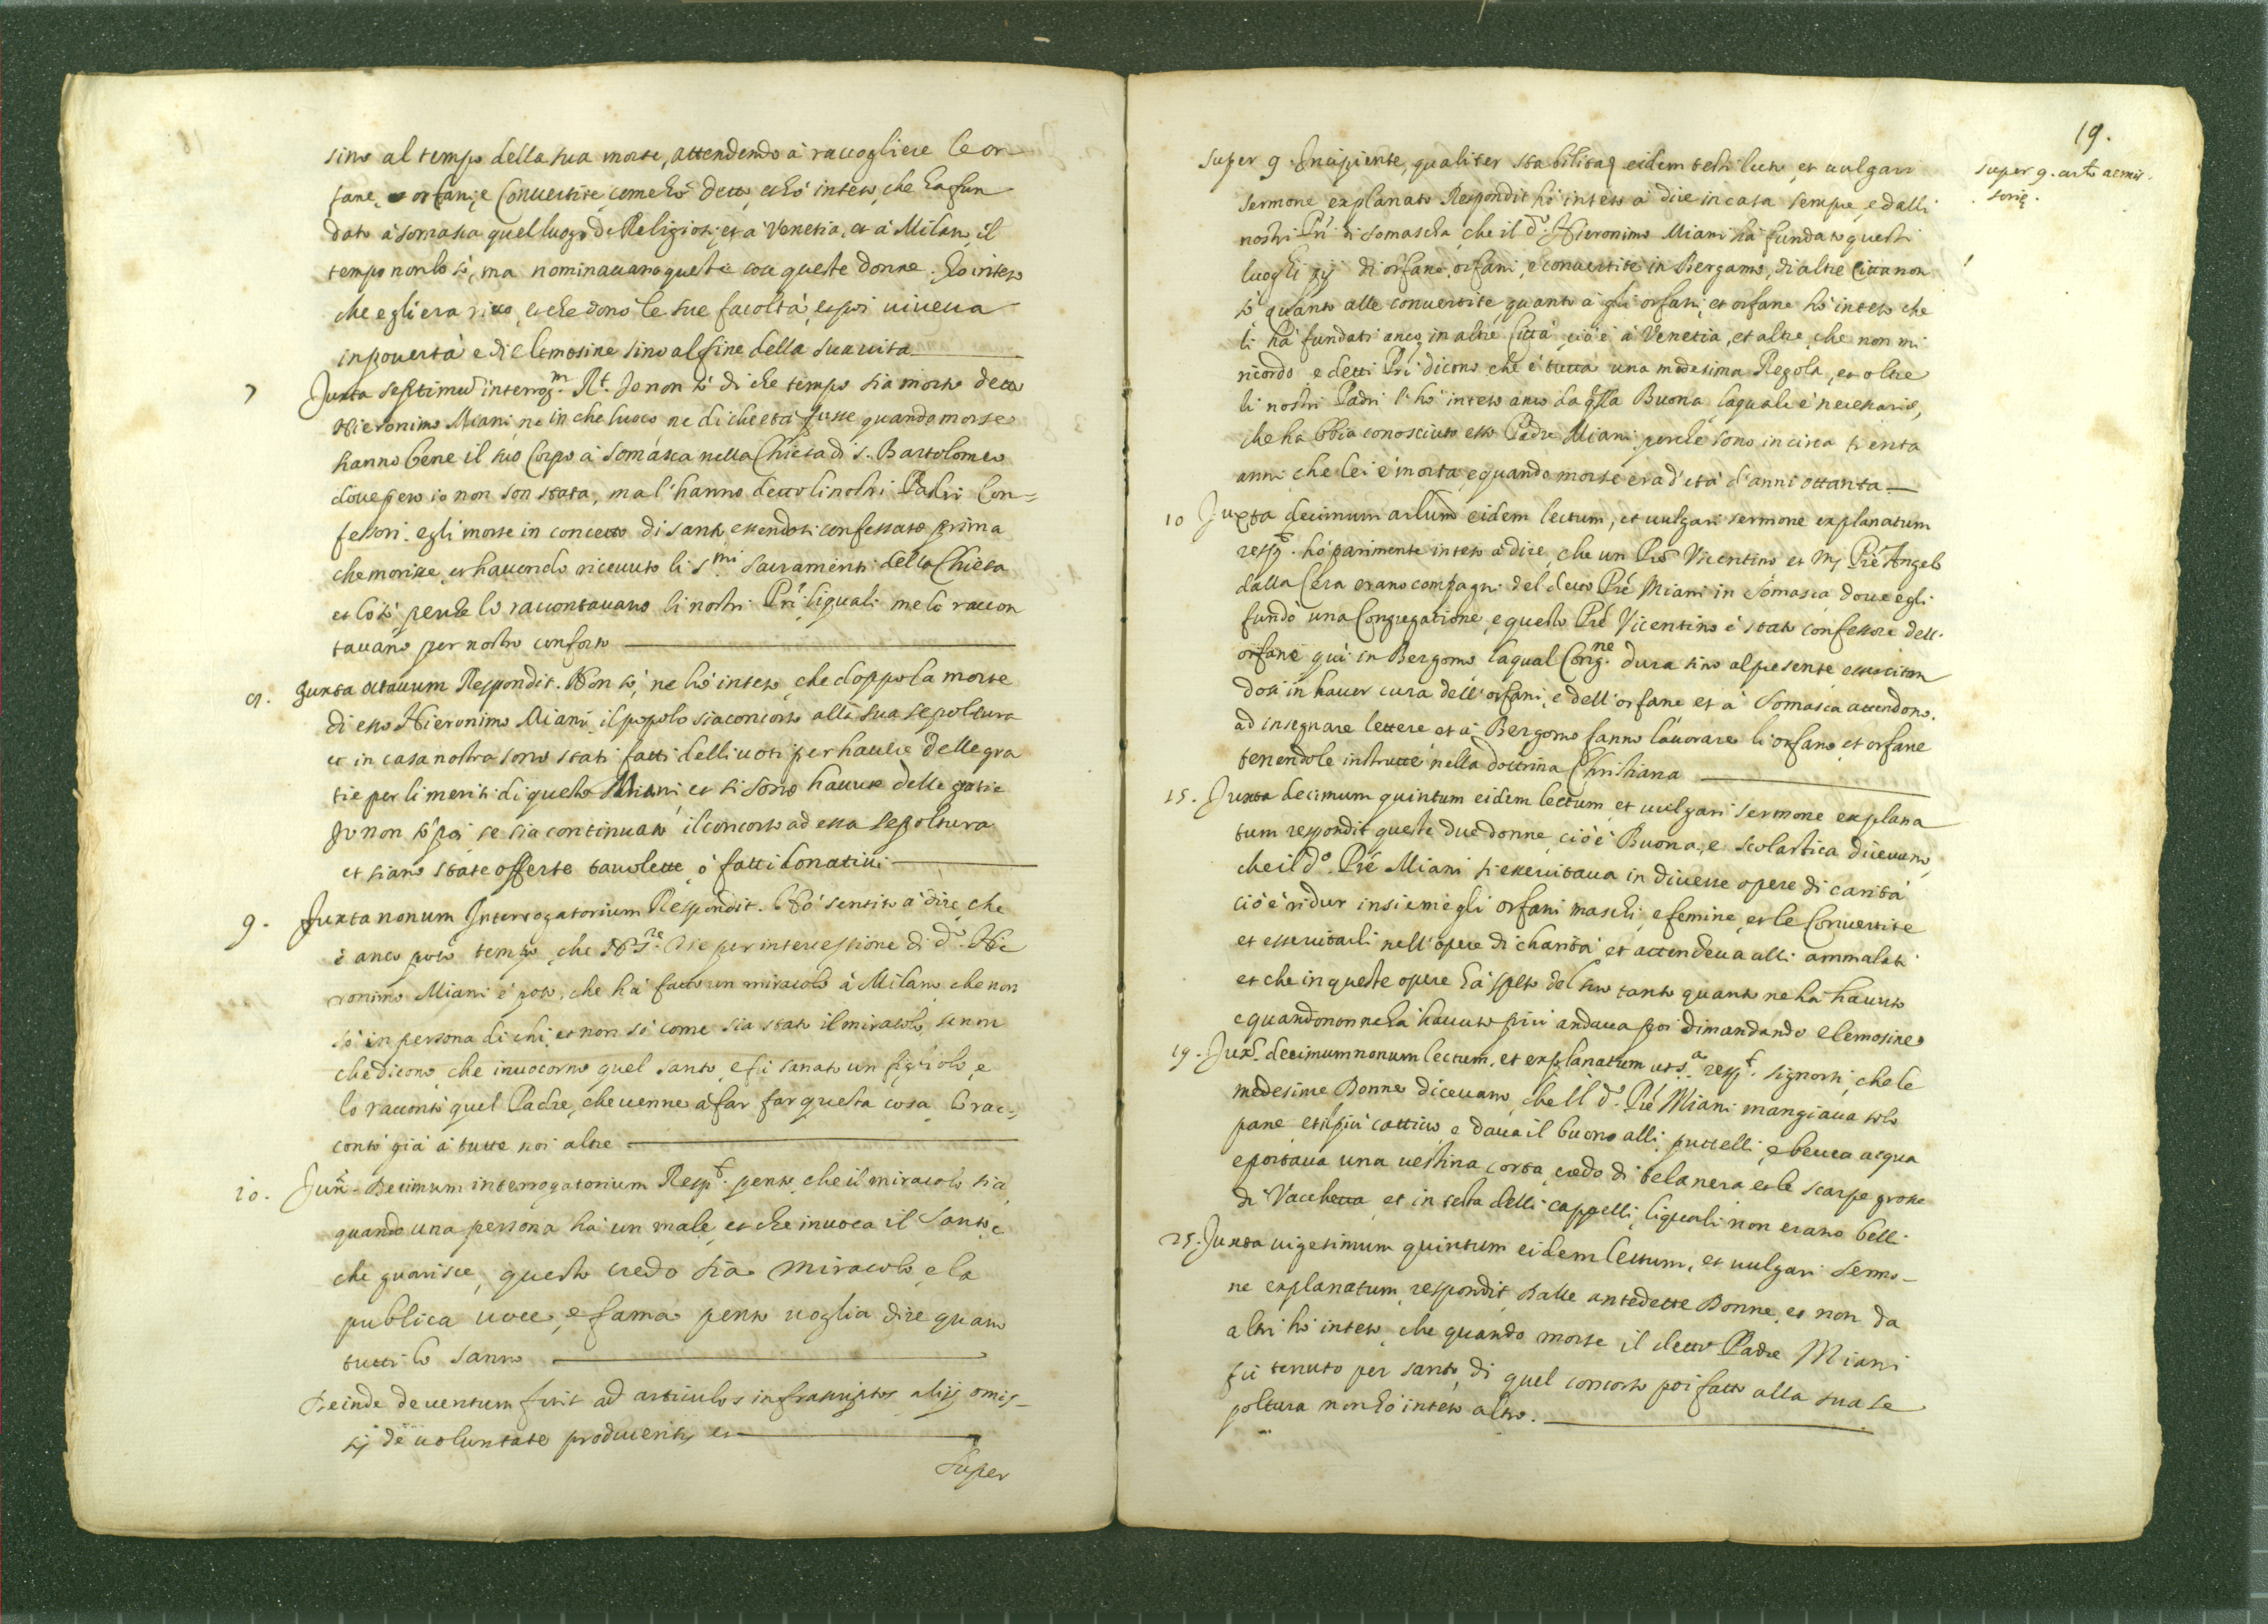 sino al tempo della sua morte, attendendo à raccogliere le or
fane, et orfani, e Convertite, come hò detto, et hò inteso, che ha fun
dato à Somasca quel luogo de Religiosi, et à Venetia, et à Milano, il
tempo non lo sò, ma nominavano queste queste donne. hò inteso
che egli era ricco, et che donò le sue facoltà, e poi viveva
in povertà e di elemosine sino al fine della sua vita
7 Juxta septimum interrog.m R.t Jo non sò di che tempo sia morto detto
Hieronimo Miani ne in che luoco ne di che età fusse quando morse
hanno bene il suo Corpo à Somasca nella Chiesa di S. Bartolomeo
dove però io non son stata, ma l'hanno detto li nostri Padri Con=
fessori. egli morse in concetto di santo, essendosi confessato prima
che morisse, et havendo ricevuto li S.mi Sacramenti della Chiesa
et lo sò, perche lo raccontavano li nostri Pri, li quali me lo raccon
tavano per nostro conforto
8. Juxta octavum Respondit. Non sò, ne hò inteso, che doppo la morte
di esso Hieronimo Miani, il popolo sia concorso alla sua sepoltura
et in casa nostra sono stati fatti delli voti per havere delle gra
tie per li meriti di questo Miani, et si sono havute delle gratie
Jo non sò poi se sia continuato il concorso ad essa sepoltura
et siano state offerte tavolette, ò fatti donativi
9. Juxta nonum Interrogatorium Respondit. Hò sentito à dire, che
è anco poco tempo, che N. S.re Dio per intercessione di d.o Hie
ronimo Miani è poco, che hà fatto un miracolo à Milano, che non
sò in persona di chi, et non sò come sia stato il miracolo, se non
che dicono, che invocorno quel santo, e fù sanato un figliolo, e
lo raccontò quel Padre, che venne à far far questa cosa, lo rac=
contò già à tutte noi altre
10. Jux. Decimum interrogatorium Resp.t penso, che il miracolo sia,
quando una persona hà un male, et che invoca il Santo, e
che guarisce, questo credo sia miracolo, e la
publica voce, e fama penso voglia dire quanto
tutti lo sanno
Deinde deventum fuit ad articulos infrascriptos alijs omis-
sis de voluntate producentis et
Super
19.
super 9. art.o remis-
sorię.
Super 9. Incipiente, qualiter stabilitaq eidem testi lecto, et vulgari
sermone explanato Respondit hò inteso à dire in casa sempre, e dalli
nostri Pri di Somascha, che il d.o Hieronimo Miani hà fundato questi
luoghi pij di orfane, orfani, e convertite in Bergamo, di altre Città non
sò quanto alle convertite, quanto à gli orfani, et orfane hò inteso che
li hà fundati anco in altre Città, cioè à Venetia, et altre, che non mi
ricordo e detti Pri dicono, che è tutta una medesima Regola, et oltre
li nostri Padri l'hò inteso anco da qlla Buona, la quale è necessario,
che habbia conosciuto esso Padre Miani, perche sono incirca trenta
anni che lei è morta, e quando morse era d'età d'anni ottanta
10 Juxta decimum artlum eidem lectum, et vulgari sermone explanatum
resp. hò parimente inteso à dire, che un Pré Vicentino et M. Pré Angelo
dalla Cera erano compagni del detto Pré Miani in Somasca, dove egli
fundò una Congregatione, e questo Pré Vicentino è stato confessore dell'
orfane quì in Bergomo, la qual Cong.ne dura sino al presente essercitan
dosi in haver cura dell'orfani, e dell'orfane et à Somasca attendono
ad insegnare lettere et à Bergomo fanno lavorare li orfani, et orfane
tenendole instrutte nella dottrina Christiana
15. Juxta decimum quintum eidem lectum, et vulgari sermone explana
tum respondit queste due donne, cioè Buona, e Scolastica dicevano,
che il d.o Pré Miani si exercitava in diverse opere di carità
cioè ridur insieme gli orfani maschi, e femine, et le Convertite
et essercitarli nell'opere di charità, et attendeva alli ammalati
et che in queste opere hà speso del suo tanto quanto ne hà havuto
e quando non ne hà havuto più andava poi dimandando elemosine
19. Jux. decimumnonum lectum, et explanatum ut s.a resp.t signorsi, che le
medesime Donne dicevano, che il d.o Pré Miani mangiava solo
pane, et il più cattivo, e dava il buono alli puttelli, e beveva acqua
e portava una vestina corta, credo di tela nera et le scarpe grosse
di Vacchetta, et in testa delli cappelli, li quali non erano belli
25. Juxta vigesimum quintum eidem lectum, et vulgari sermo-
ne explanatum, respondit, Dalle antedette Donne, et non da
altri hò inteso, che quando morse il detto Padre Miani
fù tenuto per santo, di quel concorso poi fatto alla sua se
poltura non hò inteso altro.